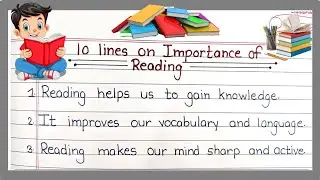 10 lines on Importance of
Reading
1. Reading helps us to gain knowledge.
2. It improves our vocabulary and language.
3. Reading makes our mind sharp and active.